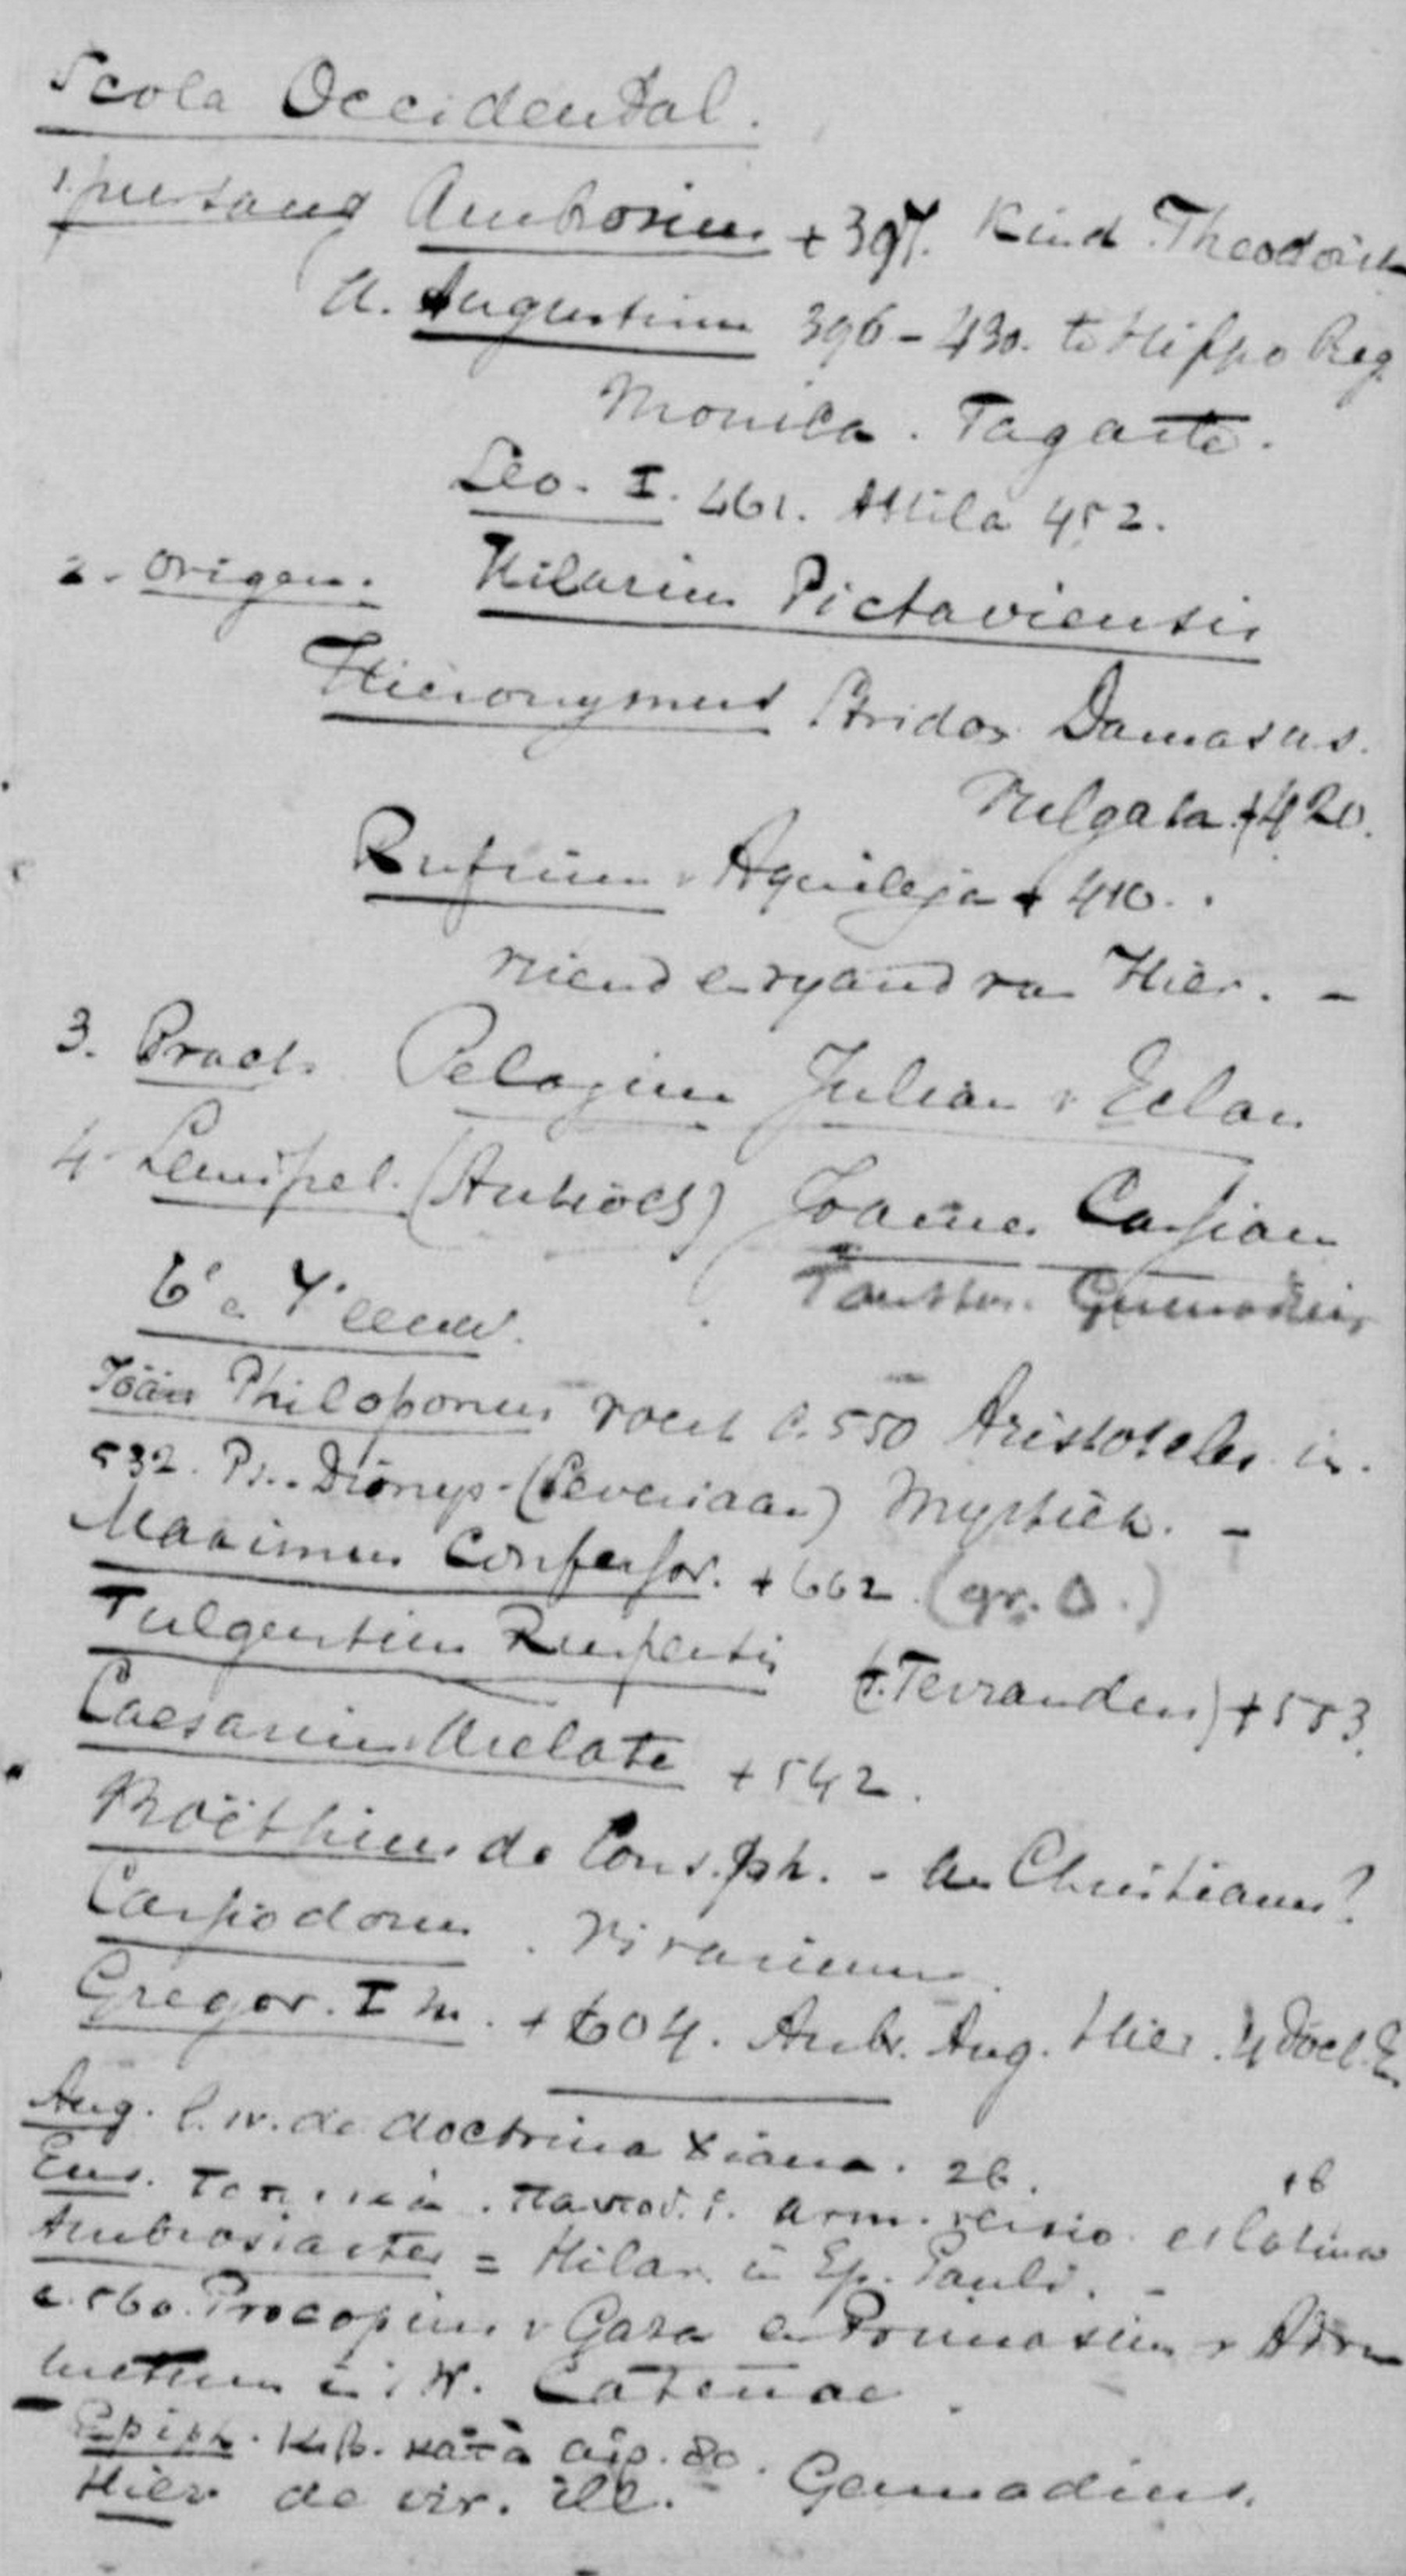 Scola Occidental.
1. Ambrosius +397. Kind. Theodoric
A. Augustinus 396-430. te Hippo Reg.
Monica. Tagaste.
Leo. I. 461. Attila 452.
2. Origen. Hilarius Pictaviensis
Hieronymus Stridon Damasus.
Vulgata +420.
Rufinus v Aquileja + 410.
vriend en vyand van Hier. -
3. Pract. Pelagius Julian v Eclan
4. Semipel. (Antioch) Joannes Cassian
Faustus. Gennadius
6e en 7e eeuw.
Joän Philoponus voert c. 550 Aristoteles in.
532. Ps. Dionys. (Severiaan) Mystiek. -
Maximus Confessor. + 662. (gr. O.)
Fulgentius Ruspensis (t. Ferrandus) + 533.
Caesarius Arelate + 542.
Boëthius de Cons. ph. - an Christianus?
Cassiodorus. Vivarium.
Gregor. I m. + 604. Ambr. Aug. Hier. 4 doct. E
Aug. l. IV. de doctrina Xiana. 26.
Eus. παντοδ. ἱ. arm. versio et latina
Ambrosiaster = Hilar. in Ep. Pauli. -
c. 560. Procopius v Gaza en Primasius v Adru
metum in 't W. Catenae.
Epiph. κατὰ αἱρ. 80.
Hier de vir. ill. - Gennadius.